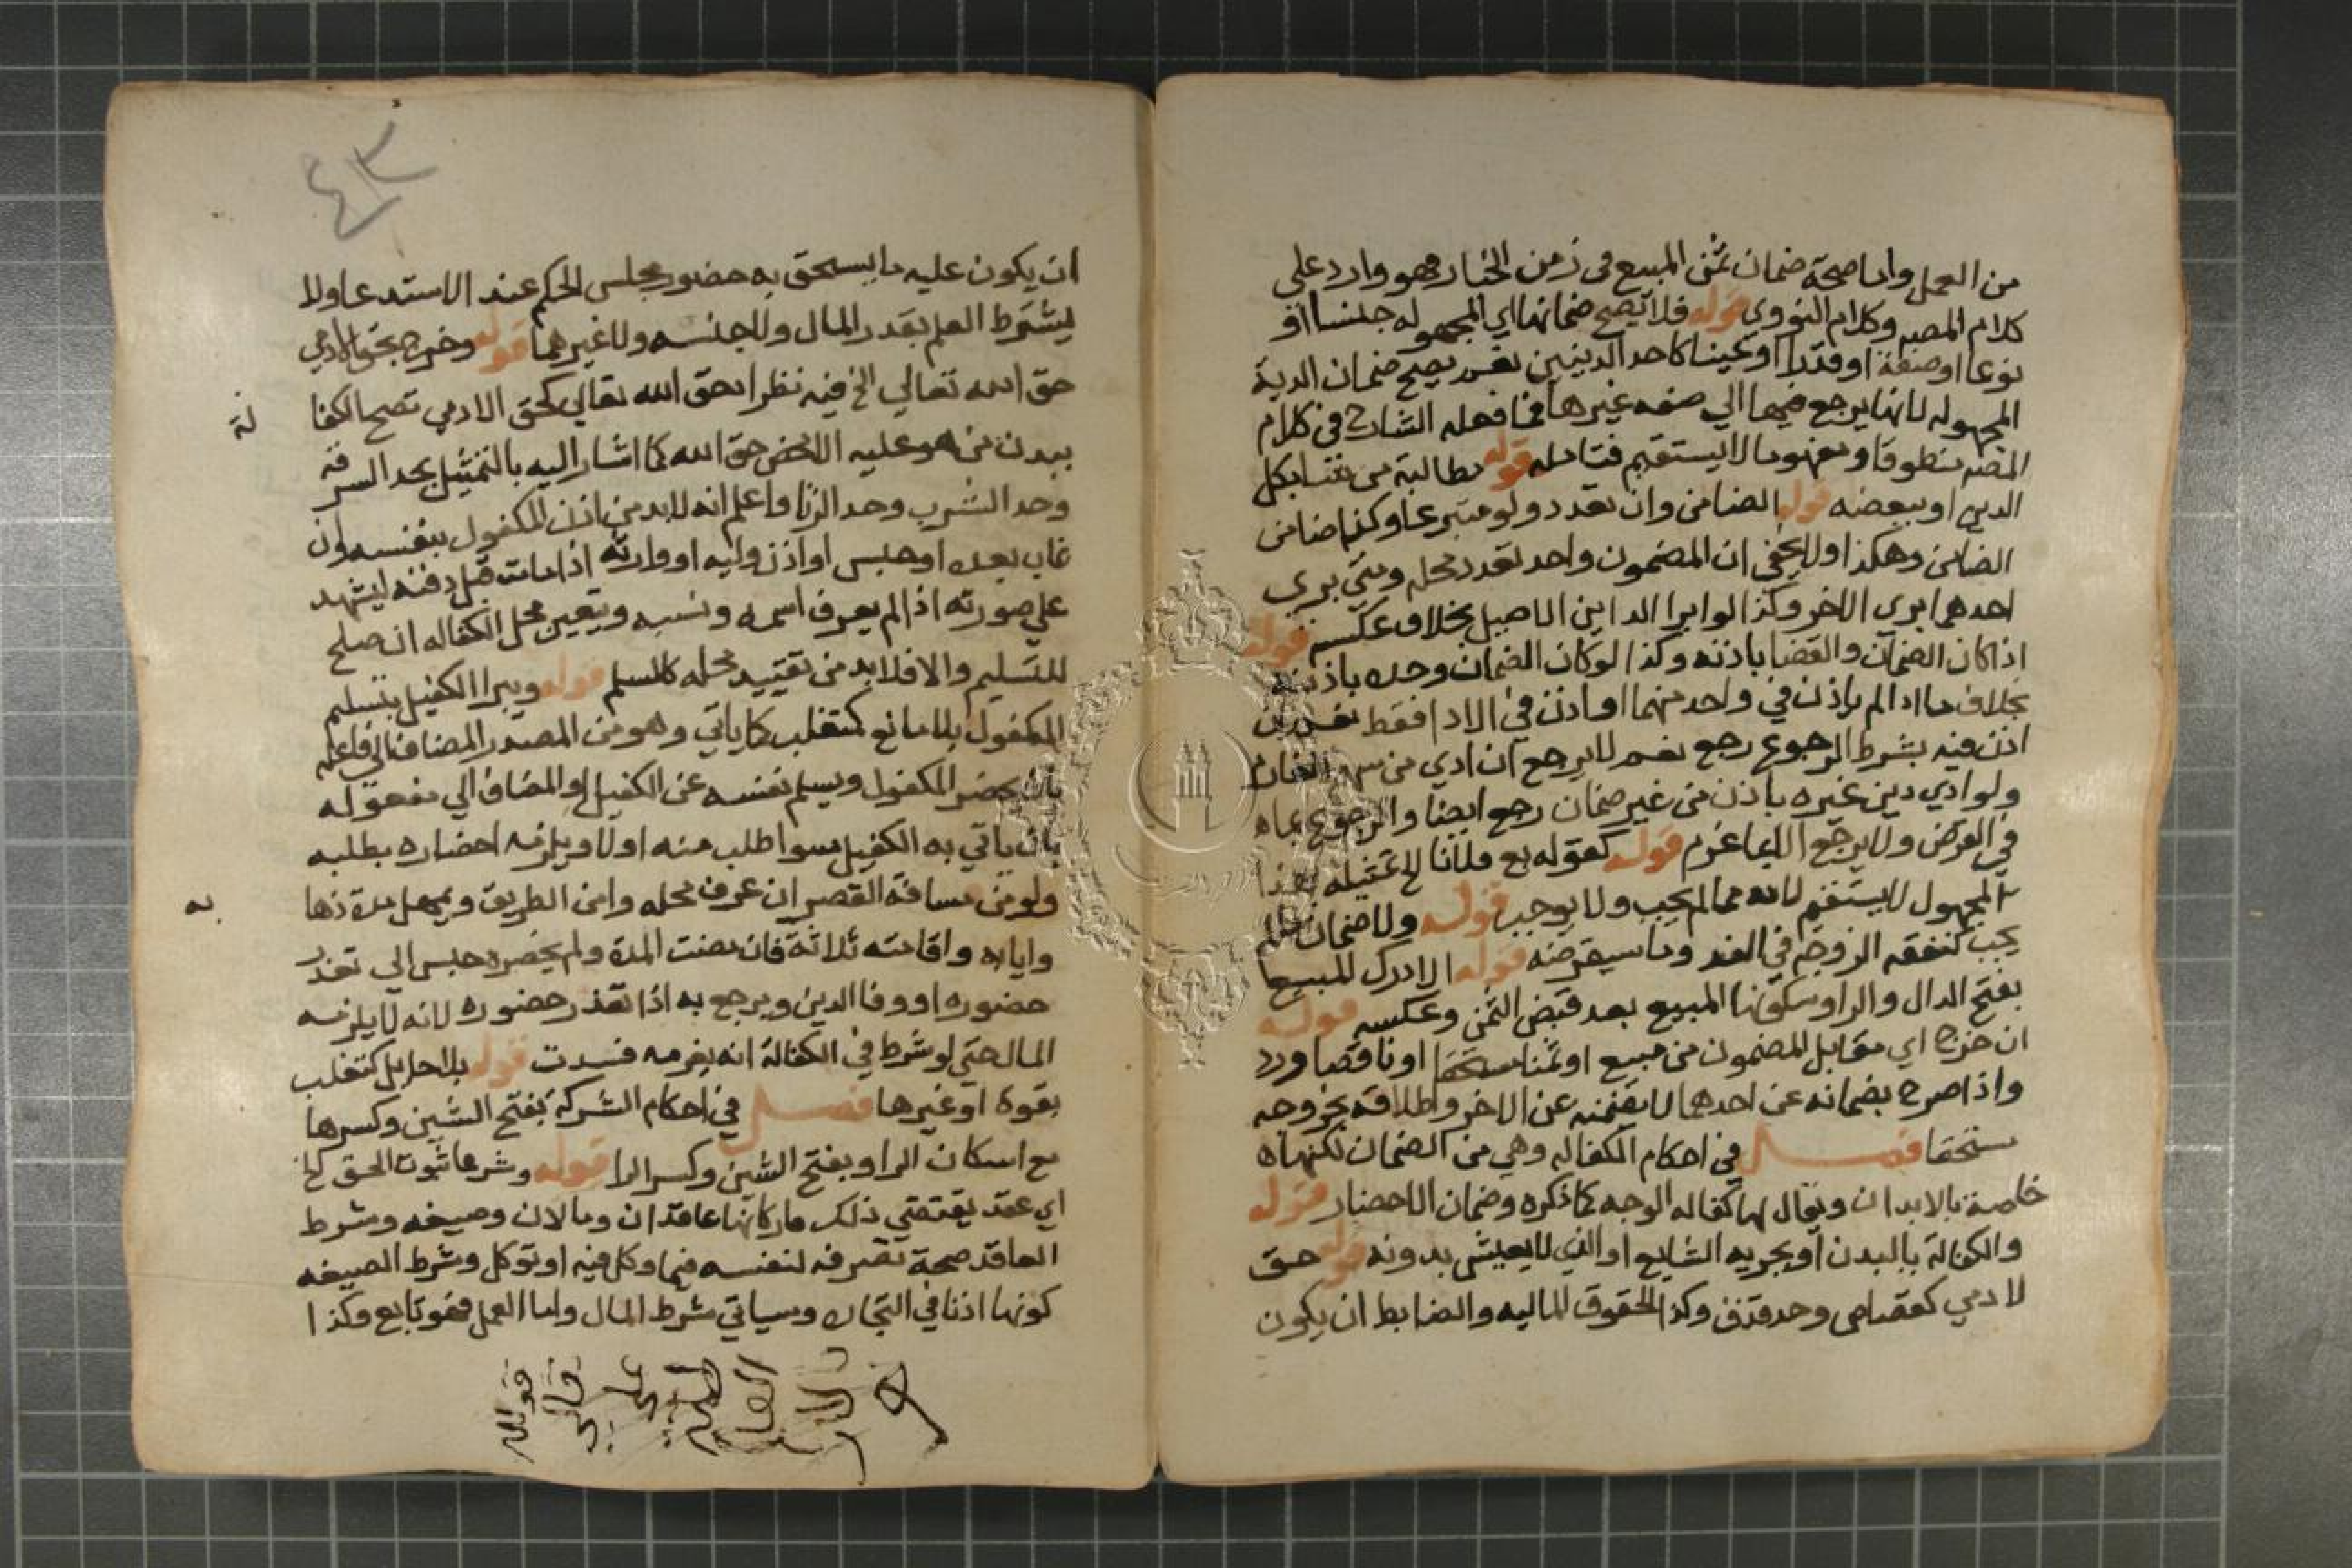 من العمل واما صحة ضمان ثمن المبيع في زمن الخيار فهو وارد علي
كلام المصر وكلام النووي قوله فلا يصح ضمانها اي المجهوله جنسا او
نوعا او صفة او قدرا او عينا كاحد الدينين نعم يصح ضمان الدية
المجهوله لانها يرجع فيها الي صفه غيرها فما فعله الشارح في كلام
المصر منطوقا ومفهوما لا يستقيم فتامله قوله مطالبة من شا بكل
الدين او ببعضه قوله الضامن وان تعدد ولو متبرعا وكذا ضامن
الضامن وهكذا ولا يخفي ان المضمون واحد تعدد محله ومتي بري
احدهما بري الاخر وكذا لو ابرا الداين الاصيل بخلاف عكسه قوله
اذا كان الضمان والقضا باذنه وكذا لو كان الضمان وحده باذنه
بخلاف ما اذا لم ياذن في واحد منهما او اذن في الادا فقط نعم ان
اذن فيه بشرط الرجوع رجع نعم لا يرجع ان ادي من سهم الغارم
ولو ادي دين غيره باذن من غير ضمان رجع ايضا والرجوع بما
في القرض ولا يرجع الا بما غرم قوله كقوله بع فلانا الخ تمثيله بهذا
المجهول لا يستقيم لانه مما لم يجب ولا يوجب قوله ولا ضمان ما لم
يجب كنفقه الزوجه في الغد وما سيقرضه قوله الا درك المبيع
بفتح الدال والرا وسكونها المبيع بعد قبض الثمن وعكسه قوله
ان خرج اي مقابل المضمون من مبيع او ثمنا مستحقا او ناقصا ورد
واذا صرح بضمانه عن احدهما لا يضمنه عن الاخر واطلاقه بخروجه
مستحقا فصل في احكام الكفاله وهي من الضمان لكنها
خاصة بالابدان ويقال لها كفاله الوجه كما ذكره وضمان الاحضار قوله
والكفالة بالبدن او بجزيه الشايع او الذي لا يعيش بدونه قوله حق
لادمي كقصاص وحد قذف وكذا الحقوق الماليه والضابط ان يكون
٤٣
ان يكون عليه ما يستحق به حضور مجلس الحكم عند الاستدعا ولا
يشترط العلم بقدر المال ولا جنسه ولا غيرهما قوله وخرج بحق الادمي
حق الله تعالي الخ فيه نظر اذ حق الله تعالي كحق الادمي تصح الكفا
لة
ببدن من هو عليه الا محض حق الله كما اشار اليه بالتمثيل بحد السرقه
وحد الشرب وحد الزنا واعلم انه لا بد من اذن المكفول بنفسه وان
غاب بعده او حبس او اذن وليه او وارثه اذا مات قبل دفنه ليشهد
علي صورته اذا لم يعرف اسمه ونسبه ويتعين محل الكفاله ان صلح
للتسليم والا فلا بد من تقييد محله كالسلم قوله ويبرا الكفيل بتسليم
المكفول بلا مانع كمتغلب كما ياتي وهو من المصدر المضاف الي فاعله
بان يحضر المكفول ويسلم نفسه عن الكفيل او المضاف الي مفعوله
بان ياتي به الكفيل سوا طلب منه اولا ويلزمه احضاره بطلبه
ولو من مسافة القصر ان عرف محله وامن الطريق ويمهل مدة ذها
به
وايابه واقامته ثلاثة فان مضت المدة ولم يحضره حبس الي تعذر
حضوره او وفا الدين ويرجع به اذا تعذر حضوره لانه لا يلزمه
المال حتي لو شرط في الكفالة انه يغرمه فسدت قوله بلا حايل كتغلب
بقوة او غيرها فصل في احكام الشركة بفتح الشين وكسرها
مع اسكان الرا وبفتح الشين وكسر الرا قوله وشرعا ثبوت الحق الخ
اي عقد يقتضي ذلك واركانها عاقدان ومالان وصيغه وشرط
العاقد صحة تصرفه لنفسه فيما وكل فيه او توكل وشرط الصيغه
كونها اذنا في التجاره وسياتي شرط المال واما العمل فهو تابع وكذا